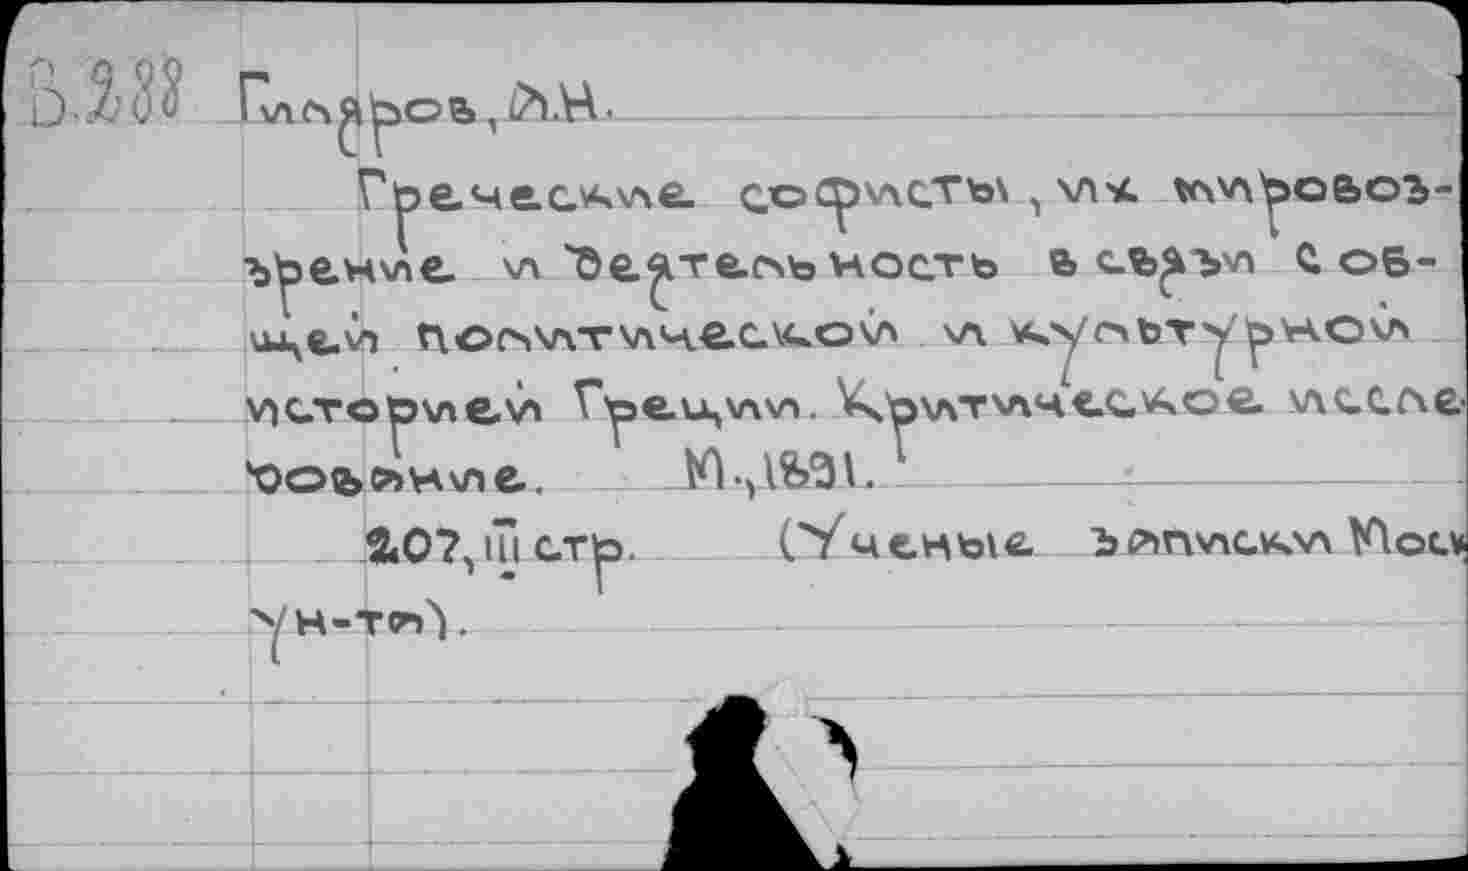 В.288 Гиляров, А.Н.
Греческие софисты, их мировоз-
зрение и деятельность в связи с об-
щей политической и культурной
историей Греции. Критическое иссле
дование. М., 1891.
207, III стр. (Ученые записки Моск
ун-та).